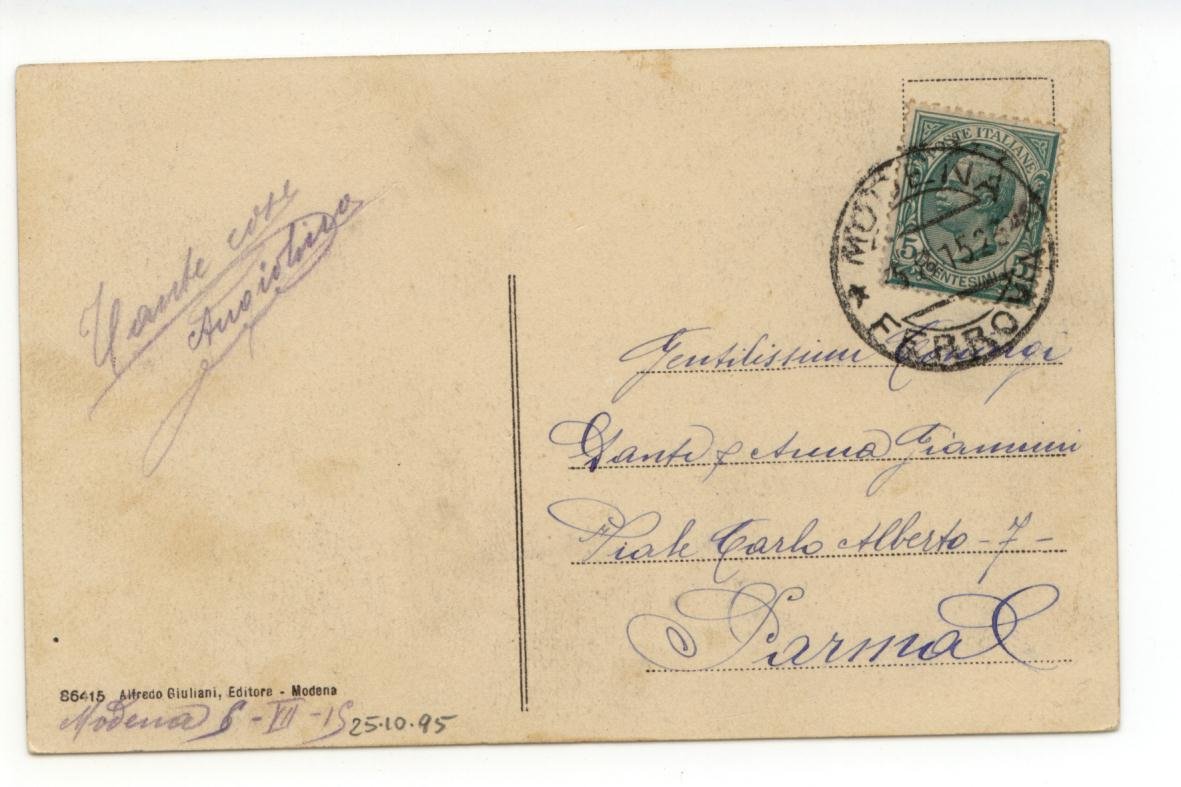 POSTE ITALIANE
5 CENTESIMI 5
MODENA
15
* FERROVIA
Tante cose
Angiolina
Gentilissimi Coniugi
Dante & Anna Giannini
Viale Carlo Alberto - 7 -
Parma
86415 Alfredo Giuliani, Editore - Modena
Modena 6 - VII - 15 25.10.95